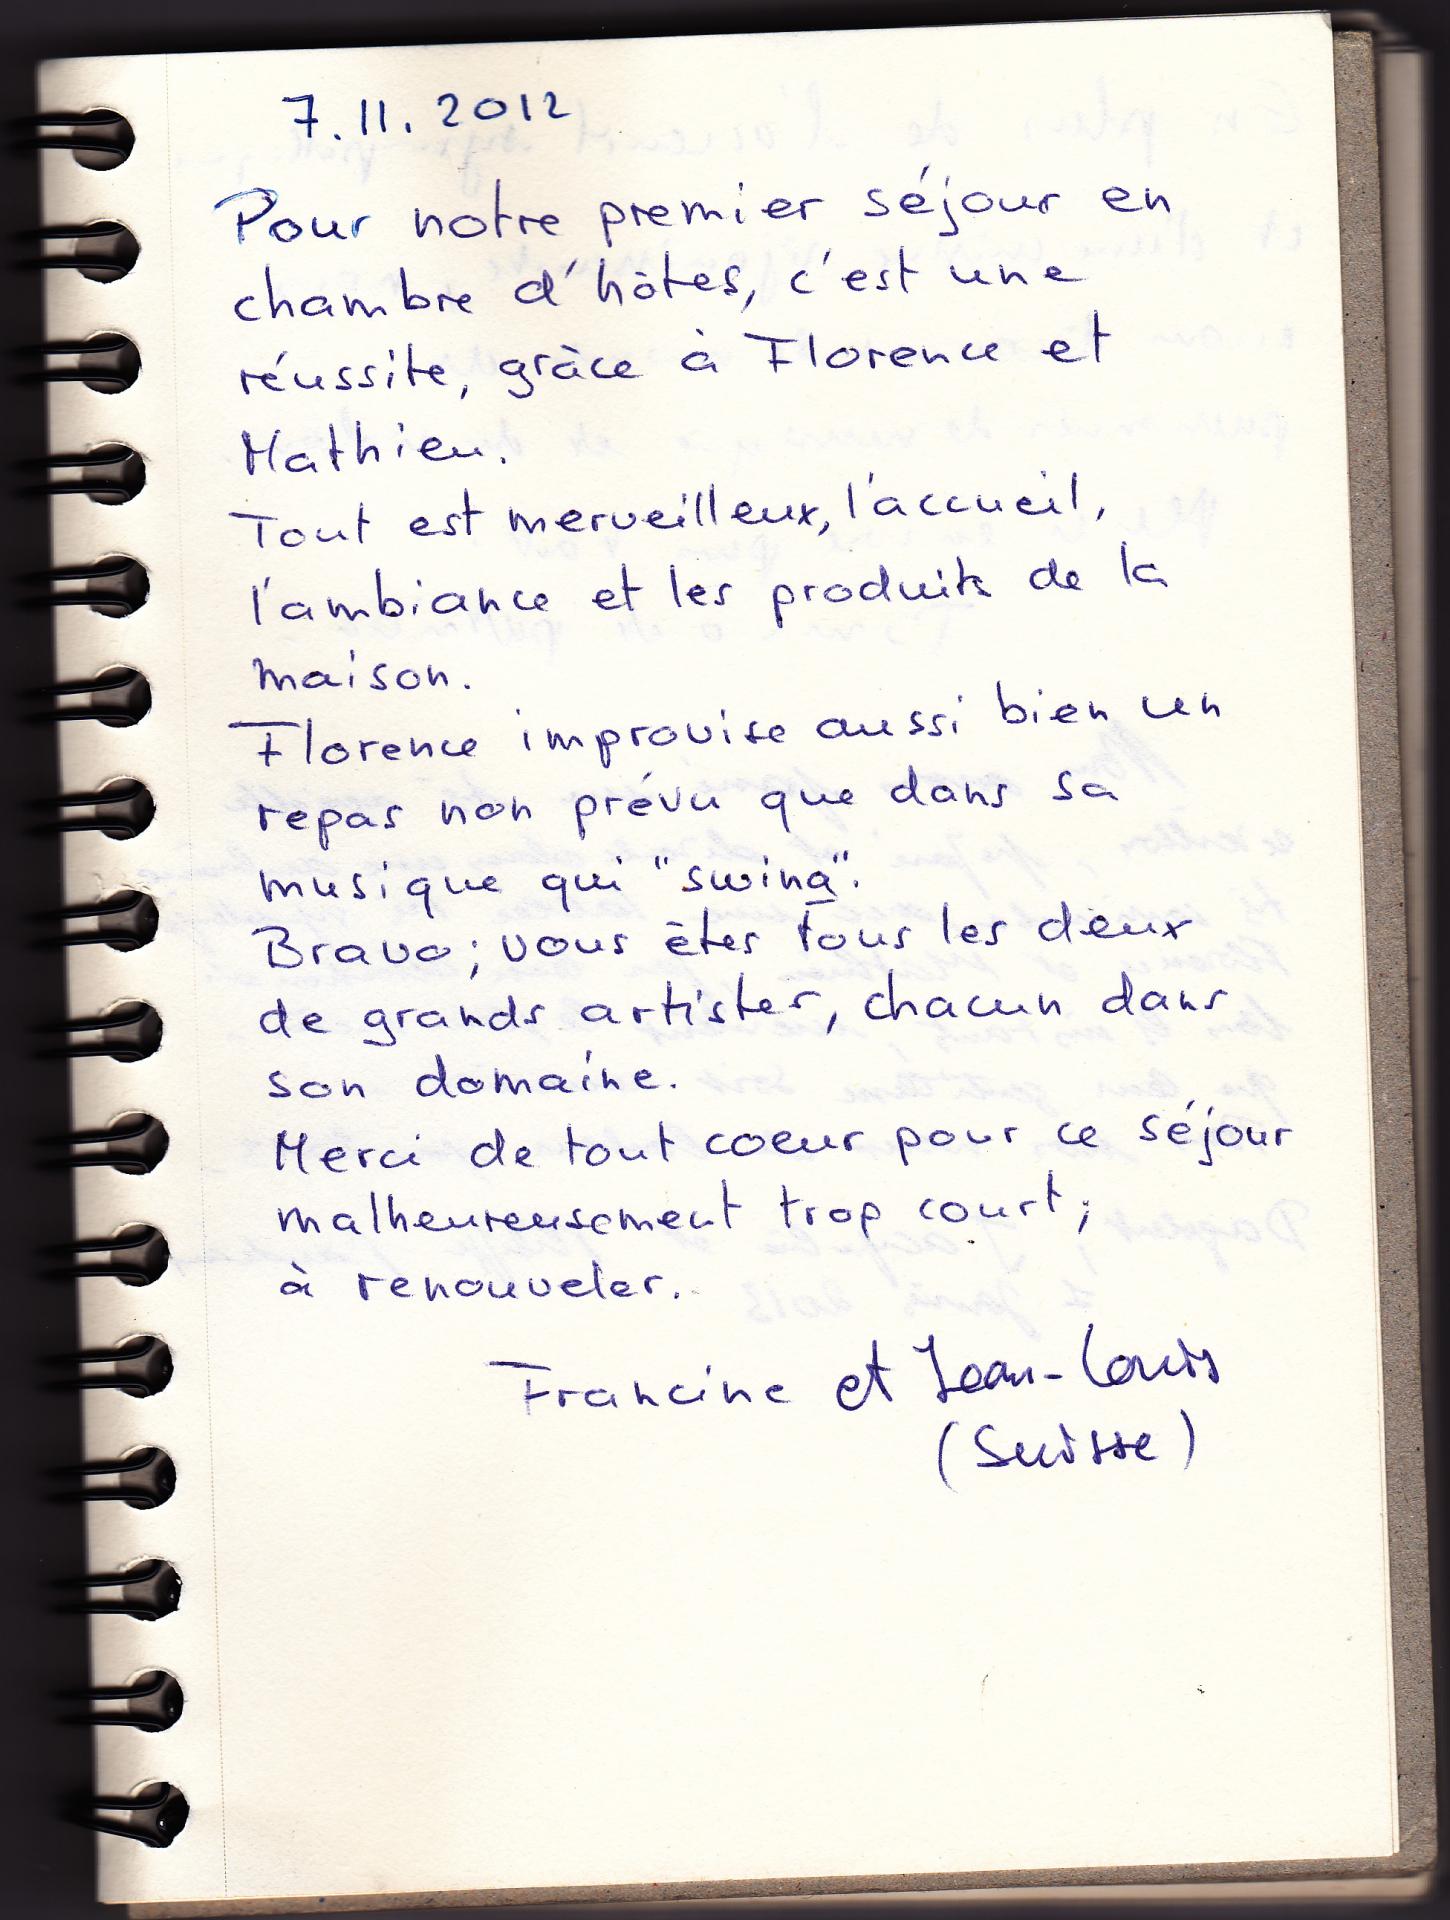 7.11.2012
Pour notre premier séjour en
chambre d'hôtes, c'est une
réussite, grâce à Florence et
Mathieu.
Tout est merveilleux, l'accueil,
l'ambiance et les produits de la
maison.
Florence improvise aussi bien un
repas non prévu que dans sa
musique qui "swing".
Bravo ; vous êtes tous les deux
de grands artistes, chacun dans
son domaine.
Merci de tout coeur pour ce séjour
malheureusement trop court ;
à renouveler.
Francine et Jean-Louis
(Suisse)